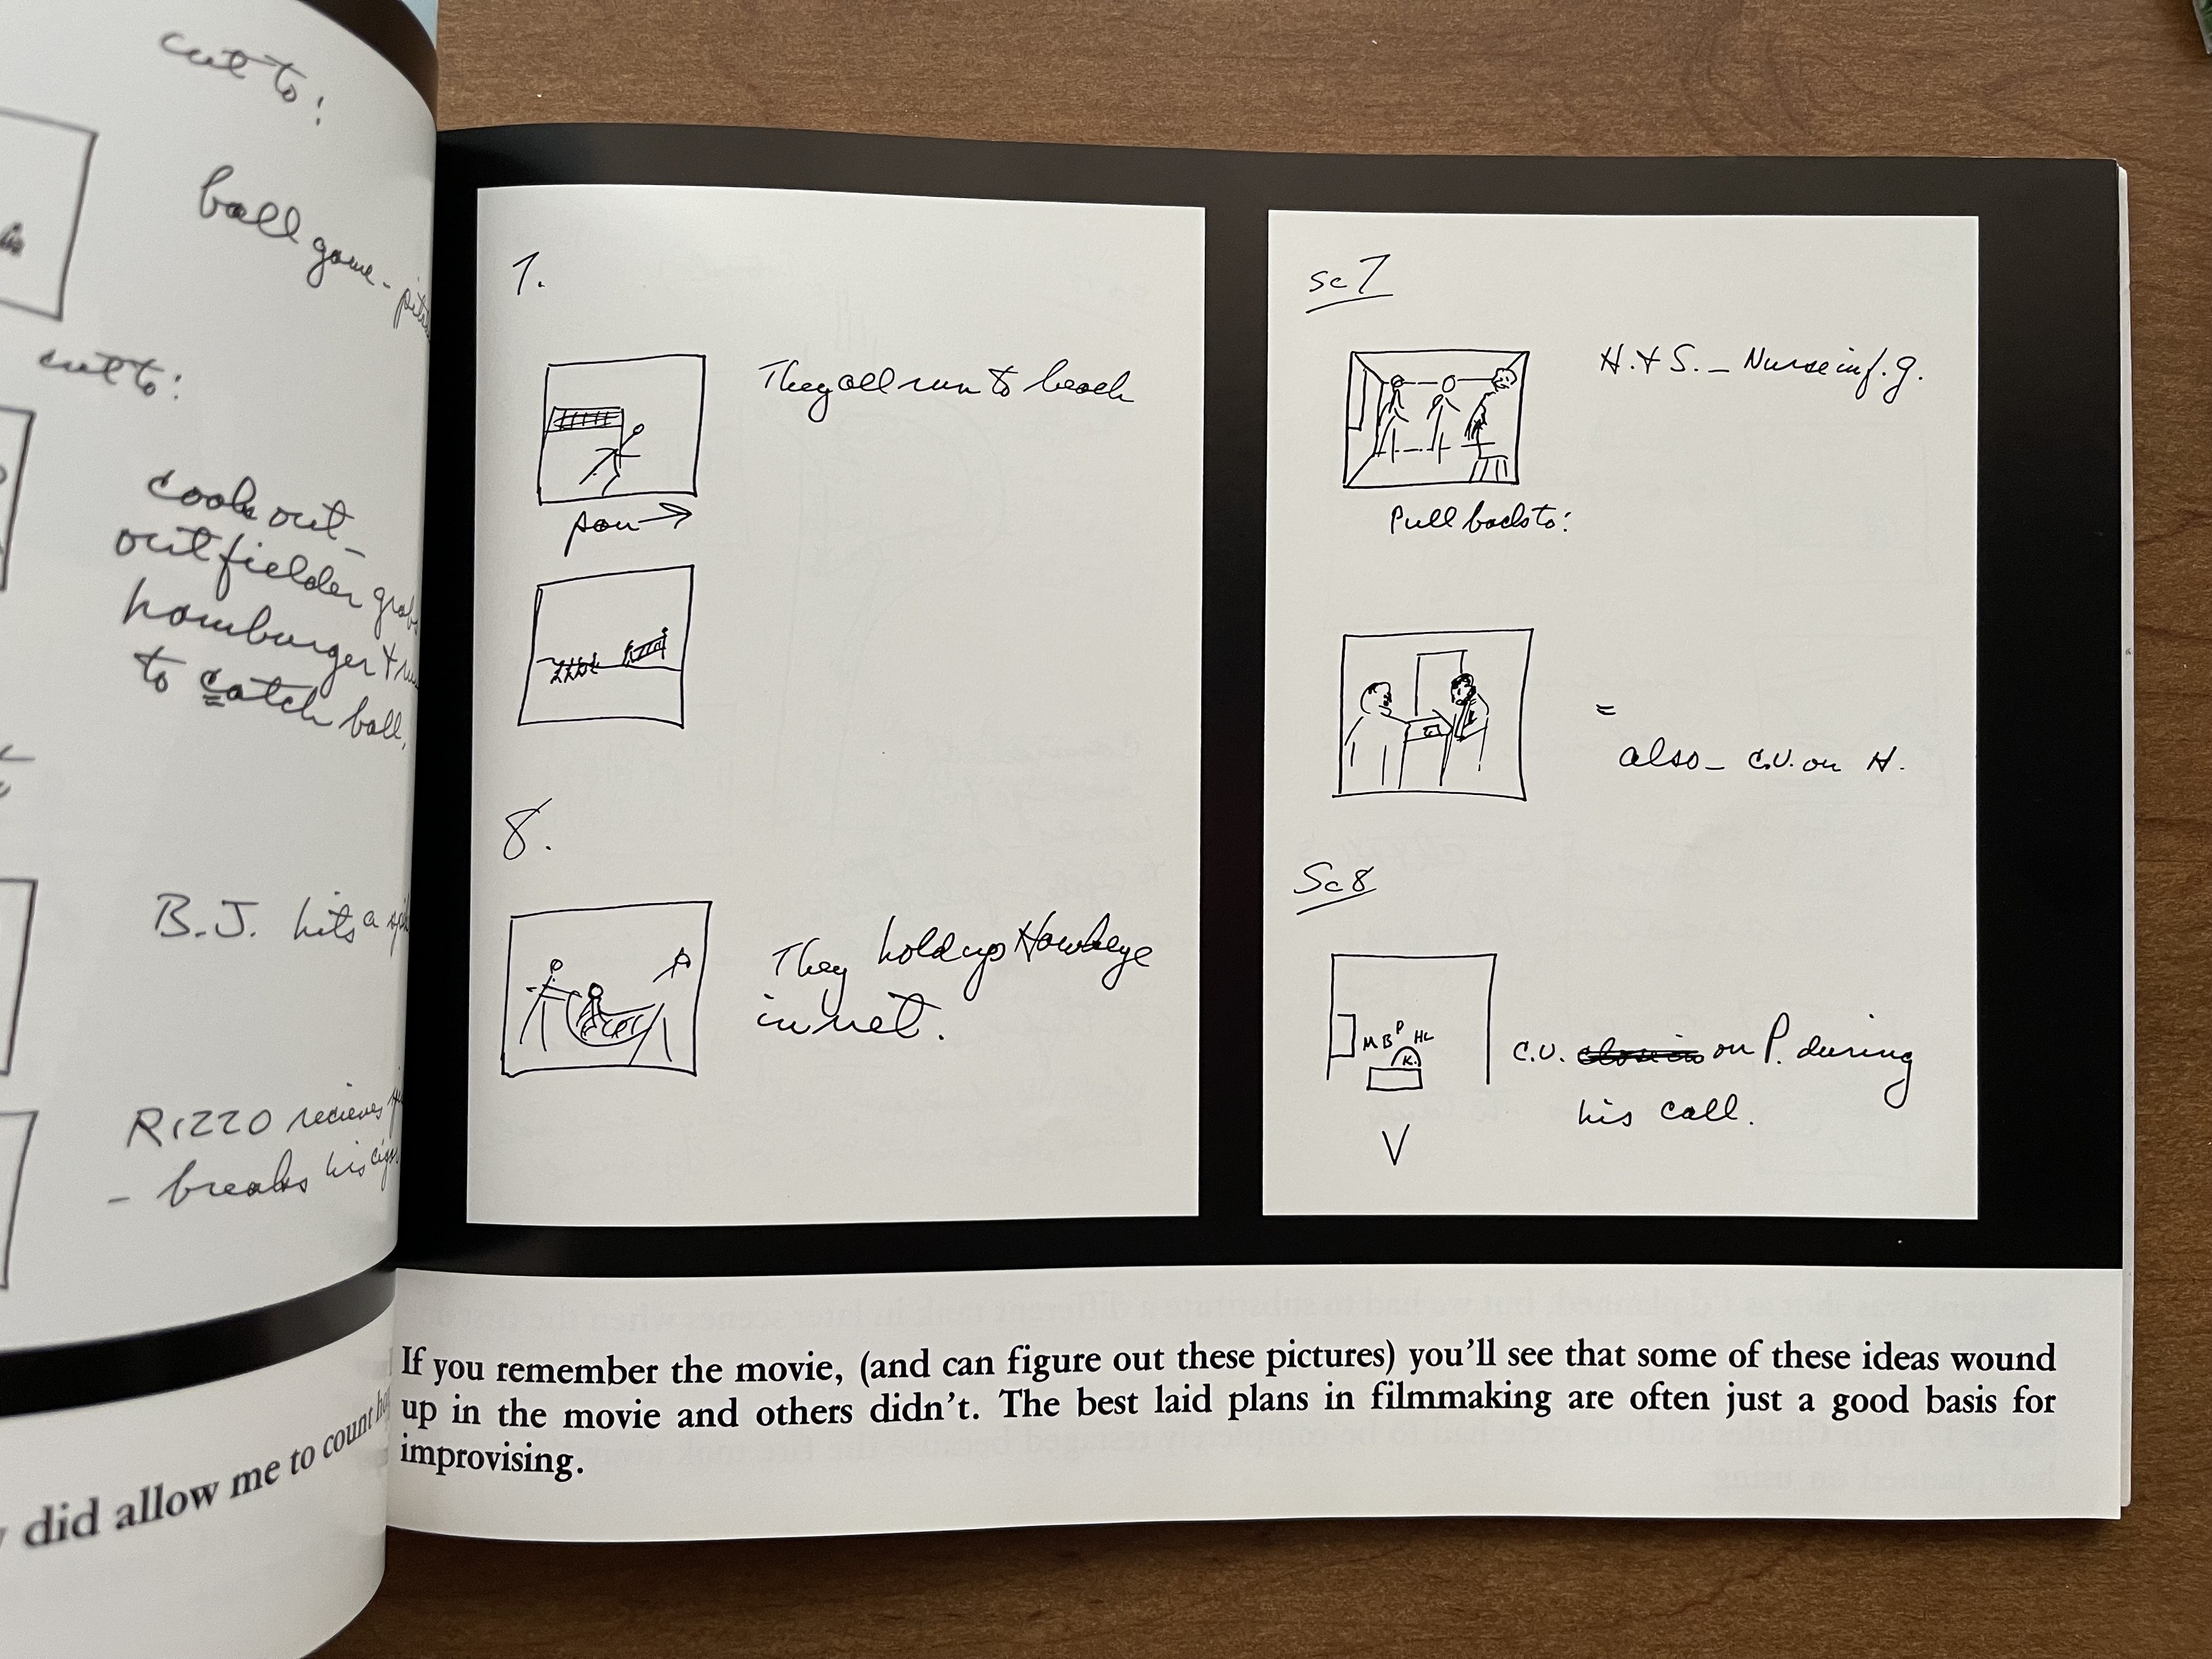 cut to:
ball game -
cut to:
cook out -
outfielder
hamburger +
to catch ball.
B.J. hits a
RIZZO recieves
- breaks his
did allow me to count
7.
They all run to beach
pan →
8.
They hold up Hawkeye
in net.
sc 7
H. + S. - Nurse in f.g.
Pull back to:
=
also - C.U. on H.
Sc 8
M B P HL
K.
C.U. on P. during
his call.
V
If you remember the movie, (and can figure out these pictures) you'll see that some of these ideas wound
up in the movie and others didn't. The best laid plans in filmmaking are often just a good basis for
improvising.